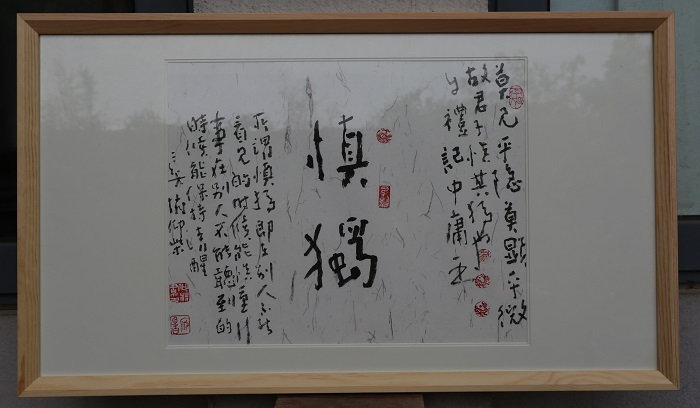 莫見乎隱莫顯乎微
故君子慎其獨也
禮記中庸
慎獨
所謂慎獨即在别人不能
看見的时候能慎重行
事在别人不能聽到的
時候能保持清醒
三吴